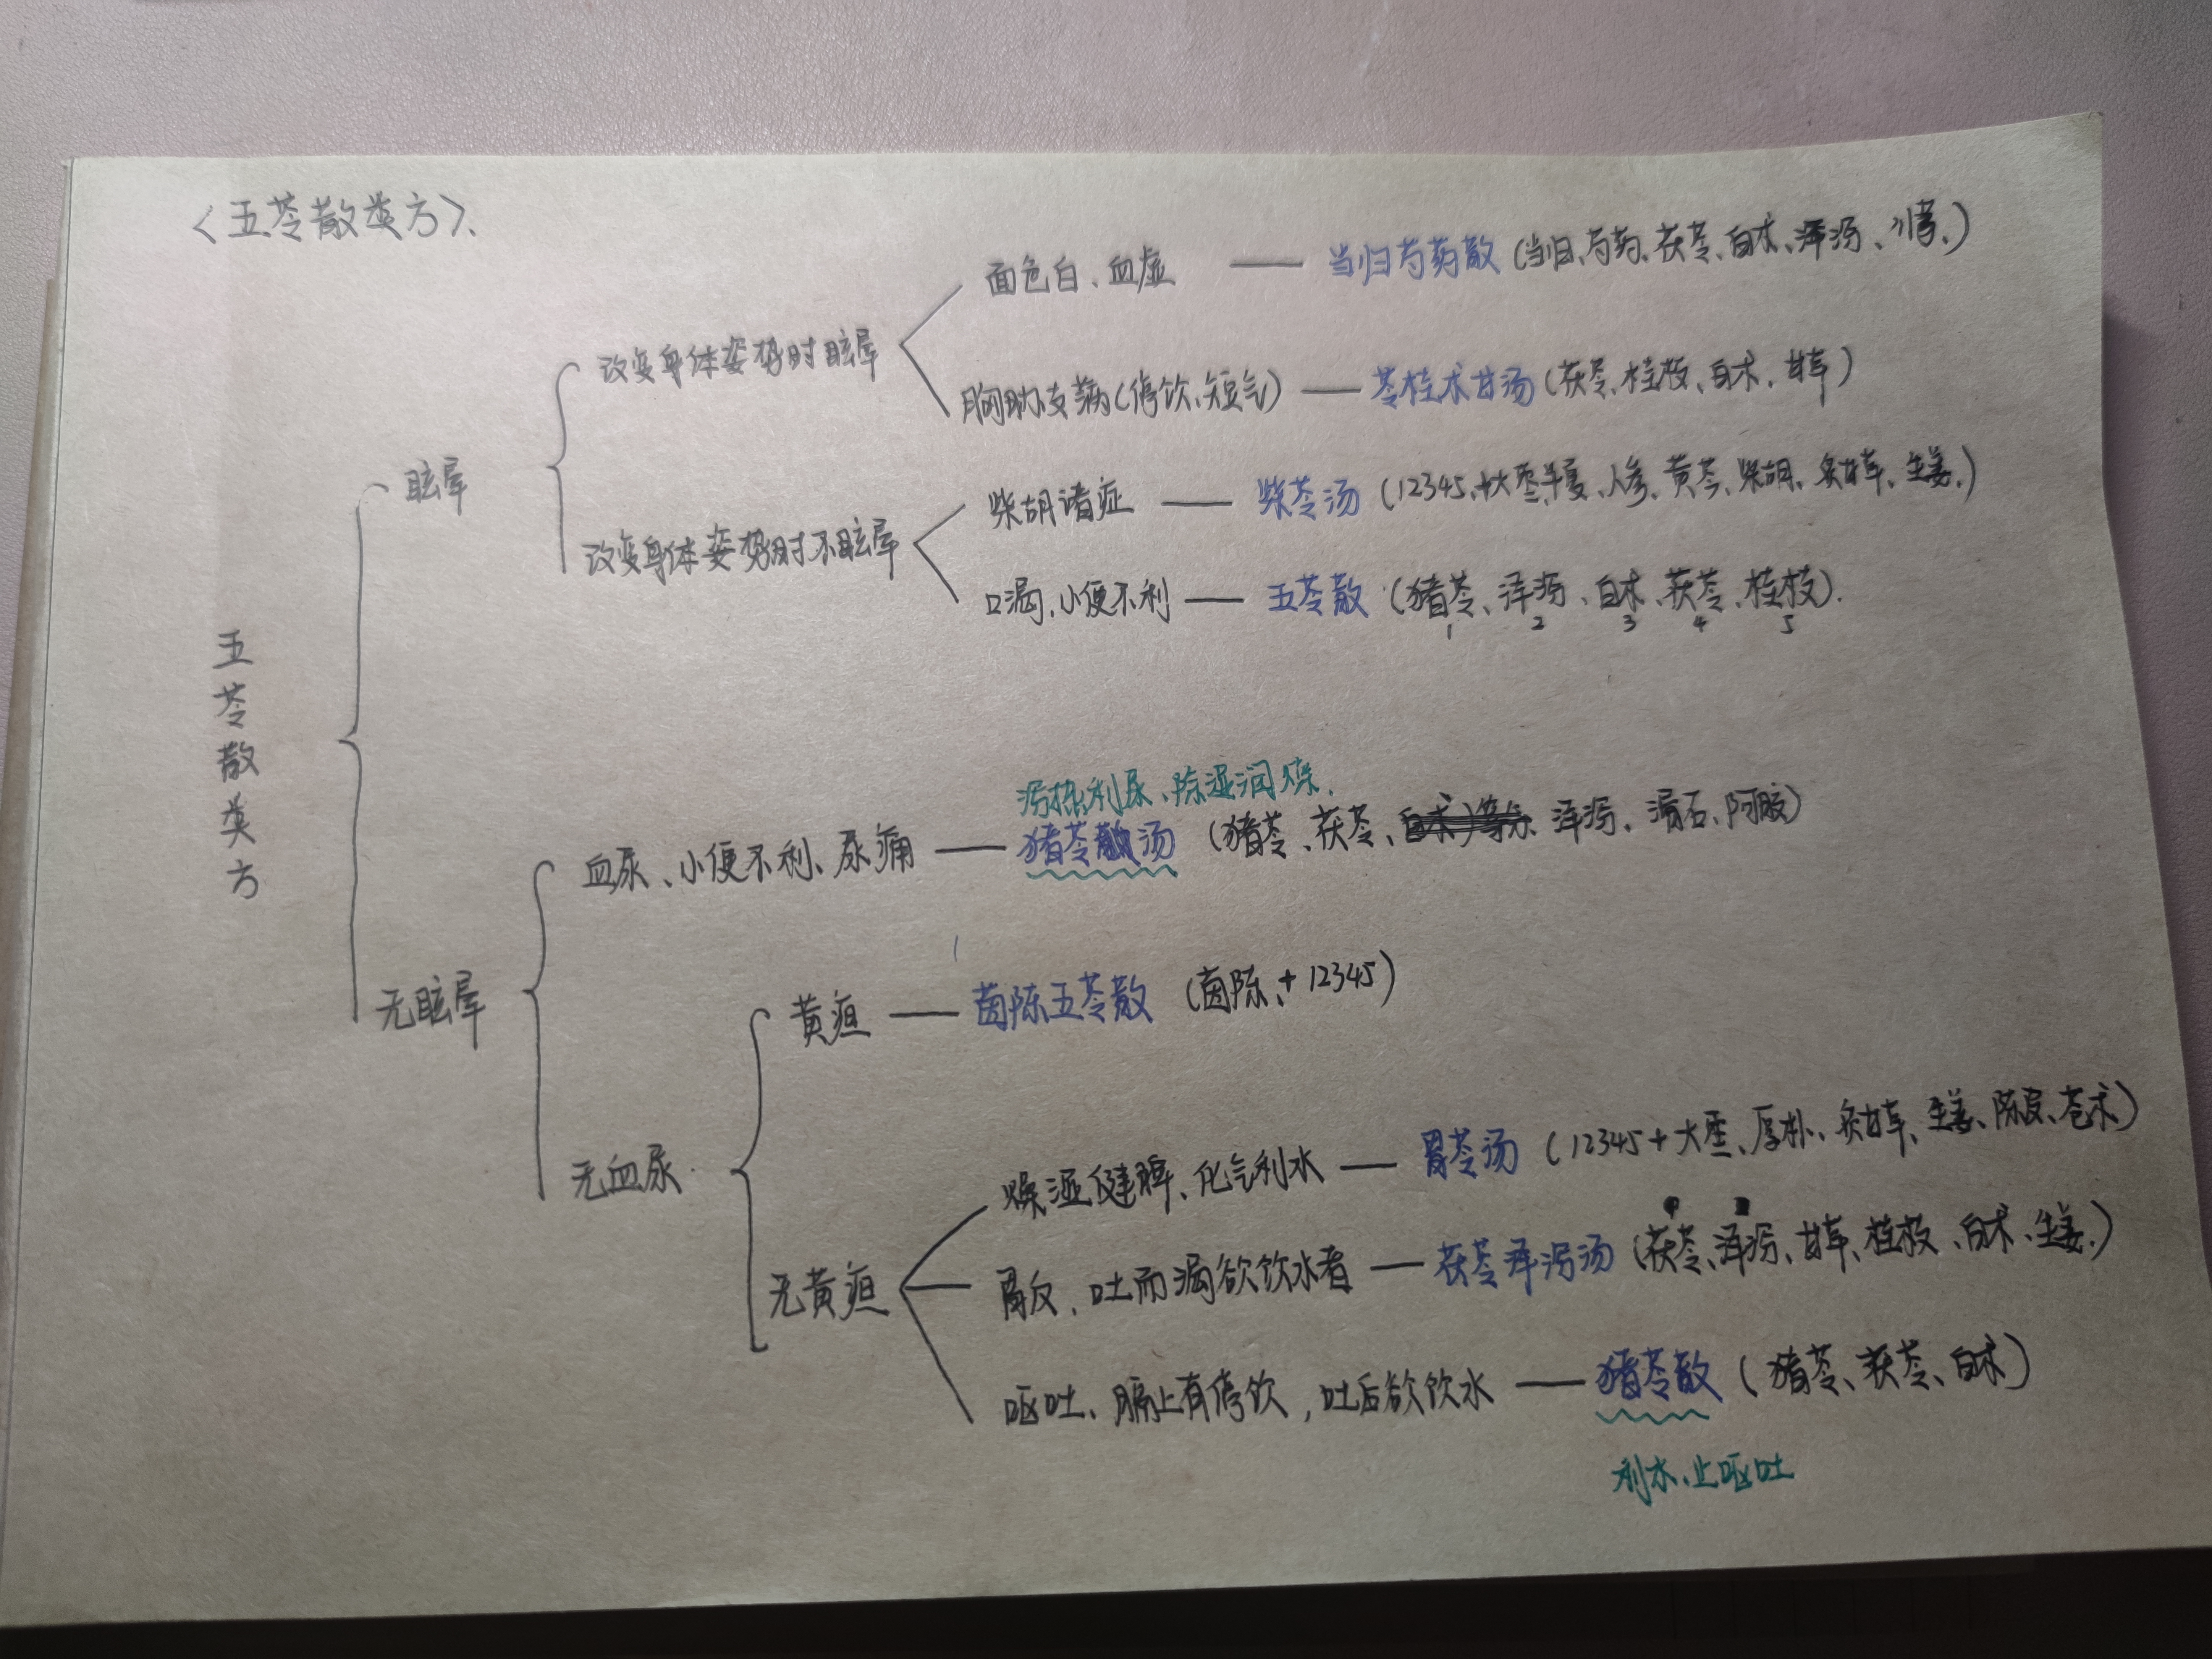 <五苓散类方>、
面色白、血虚 —— 当归芍药散 (当归、芍药、茯苓、白术、泽泻、川芎、)
改变身体姿势时眩晕
胸胁支满(停饮、短气) —— 苓桂术甘汤 (茯苓、桂枝、白术、甘草)
眩晕
柴胡诸症 —— 柴苓汤 (12345、+大枣、半夏、人参、黄芩、柴胡、炙甘草、生姜、)
改变身体姿势时不眩晕
口渴,小便不利 —— 五苓散 (猪苓、泽泻、白术、茯苓、桂枝).
1 2 3 4 5
五苓散类方
泻热利尿、除湿润燥.
血尿、小便不利、尿痛 —— 猪苓汤 (猪苓、茯苓、泽泻、滑石、阿胶)
无眩晕
黄疸 —— 茵陈五苓散 (茵陈、+ 12345)
无血尿.
燥湿健脾、化气利水 —— 胃苓汤 (12345+大枣、厚朴、炙甘草、生姜、陈皮、苍术)
无黄疸
胃反,吐而渴欲饮水者 —— 茯苓泽泻汤 (茯苓、泽泻、甘草、桂枝、白术、生姜.)
呕吐、膈上有停饮,吐后欲饮水 —— 猪苓散 (猪苓、茯苓、白术)
利水、止呕吐